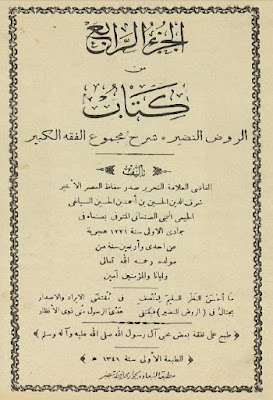 الجزء الرابع
من
كتاب
الروض النضير * شرح مجموع الفقه الكبير
تأليف
القاضي العلامة النحرير صدر حفاظ العصر الأخير
شرف الدين الحسين بن أحمد بن الحسين السياغي
الحيمي اليمني الصنعاني المتوفى بصنعاء في
جمادى الاولى سنة ١٢٢١ هجرية
عن احدى وأربعين سنة من
مولده رحمه الله تعالى
وايانا والمؤمنين آمين
ما أحسن النظر السليم لمنصف في مقتضى الايراد والاصدار
يختال في (الروض النضير) فيجتنى هدى الرسول من ذوى الأنظار
طبع على نفقة بعض محبي آل رسول الله صلى الله عليه وآله وسلم
الطبعة الأولى سنة ١٣٤٩ هـ
مطبعة السعادة بجوار محافظة مصر